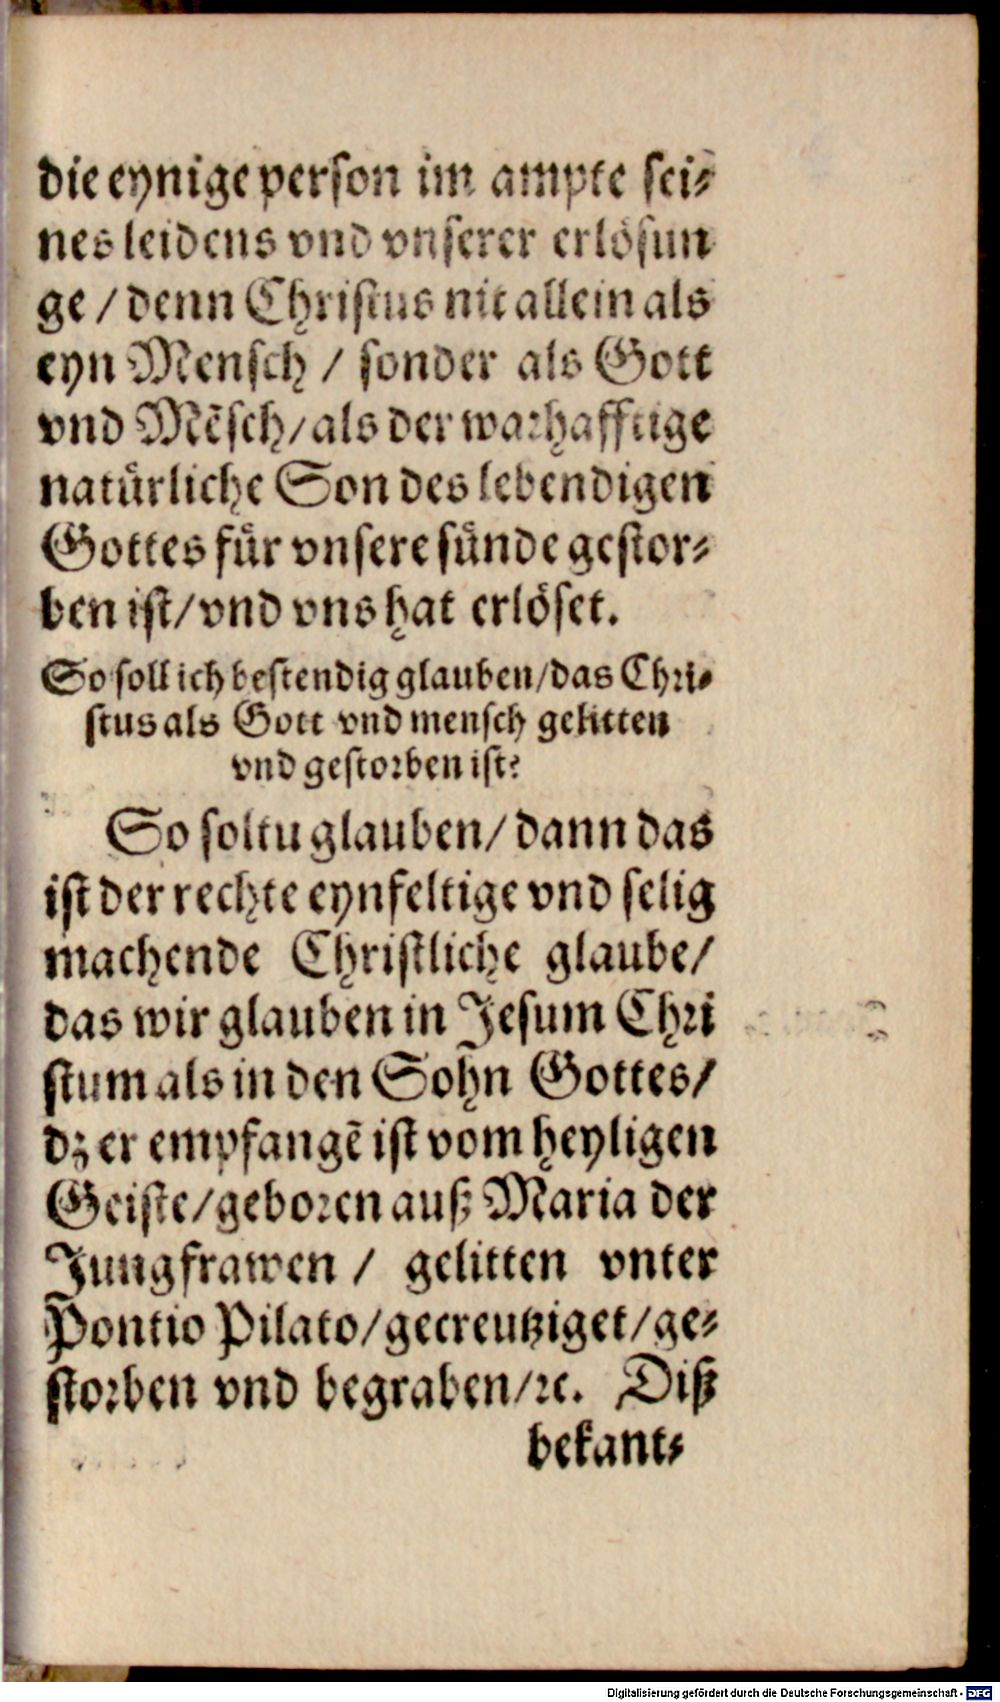 die eynige person im ampte sei⸗
nes leidens vnd vnserer erlösun
ge / denn Christus nit allein als
eyn Mensch / sonder als Gott
vnd Mẽsch/als der warhafftige
natürliche Son des lebendigen
Gottes für vnsere sünde gestor⸗
ben ist/vnd vns hat erlöset.
So soll ich bestendig glauben/das Chri⸗
stus als Gott vnd mensch gelitten
vnd gestorben ist?
So soltu glauben/ dann das
ist der rechte eynfeltige vnd selig
machende Christliche glaube/
das wir glauben in Jesum Chri
stum als in den Sohn Gottes/
dz er empfangẽ ist vom heyligen
Geiste/geboren auß Maria der
Jungfrawen / gelitten vnter
Pontio Pilato/gecreutziget/ge⸗
storben vnd begraben/ꝛc. Diß
bekant⸗
Digitalisierung gefördert durch die Deutsche Forschungsgemeinschaft - DFG